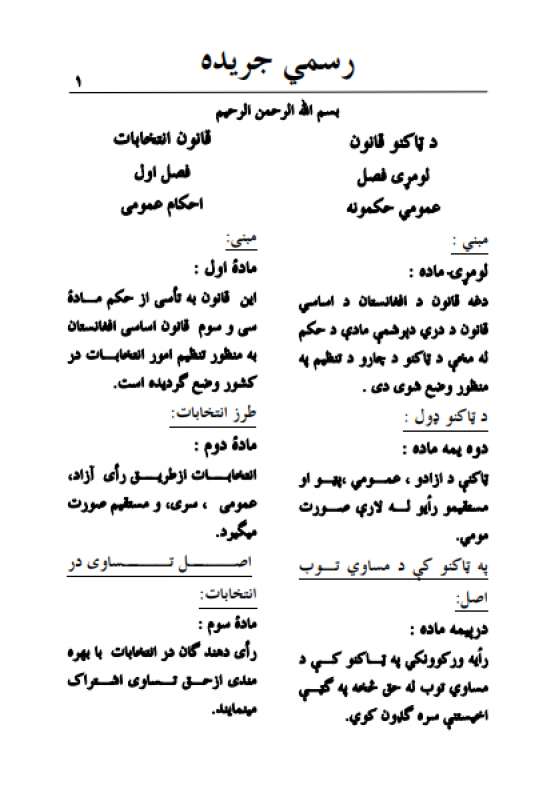 رسمي جريده
۱
بسم الله الرحمن الرحيم
د ټاکنو قانون
لومړی فصل
عمومي حکمونه
مبني :
لومړۍ ماده :
دغه قانون د افغانستان د اساسي
قانون د دري دېرشمې مادې د حکم
له مخې د ټاکنو د چارو د تنظيم په
منظور وضع شوی دی .
د ټاکنو ډول :
دوه يمه ماده :
ټاکنې د ازادو ، عمــومي ،پټــو او
مستقيمو رأيو لــه لارې صــورت
مومي.
په ټاکنو کې د مساوي تــوب
اصل:
درېيمه ماده :
رأيه ورکوونکي په ټــاکنو کــې د
مساوي توب له حق څخه په گټــې
اخيستنې سره گډون کوي.
قانون انتخابات
فصل اول
احکام عمومی
مبنی:
مادۀ اول :
این قانون به تأسی از حکم مــادۀ
سی و سوم قانون اساسی افغانستان
به منظور تنظیم امور انتخابــات در
کشور وضع گردیده است.
طرز انتخابات:
مادۀ دوم :
انتخابــات ازطریــق رأی آزاد،
عمومی ، سری، و مستقیم صورت
میگیرد.
اصــل تــساوی در
انتخابات:
مادۀ سوم :
رأی دهند گان در انتخابات با بهره
مندی ازحــق تــساوی اشــتراک
مینمایند.